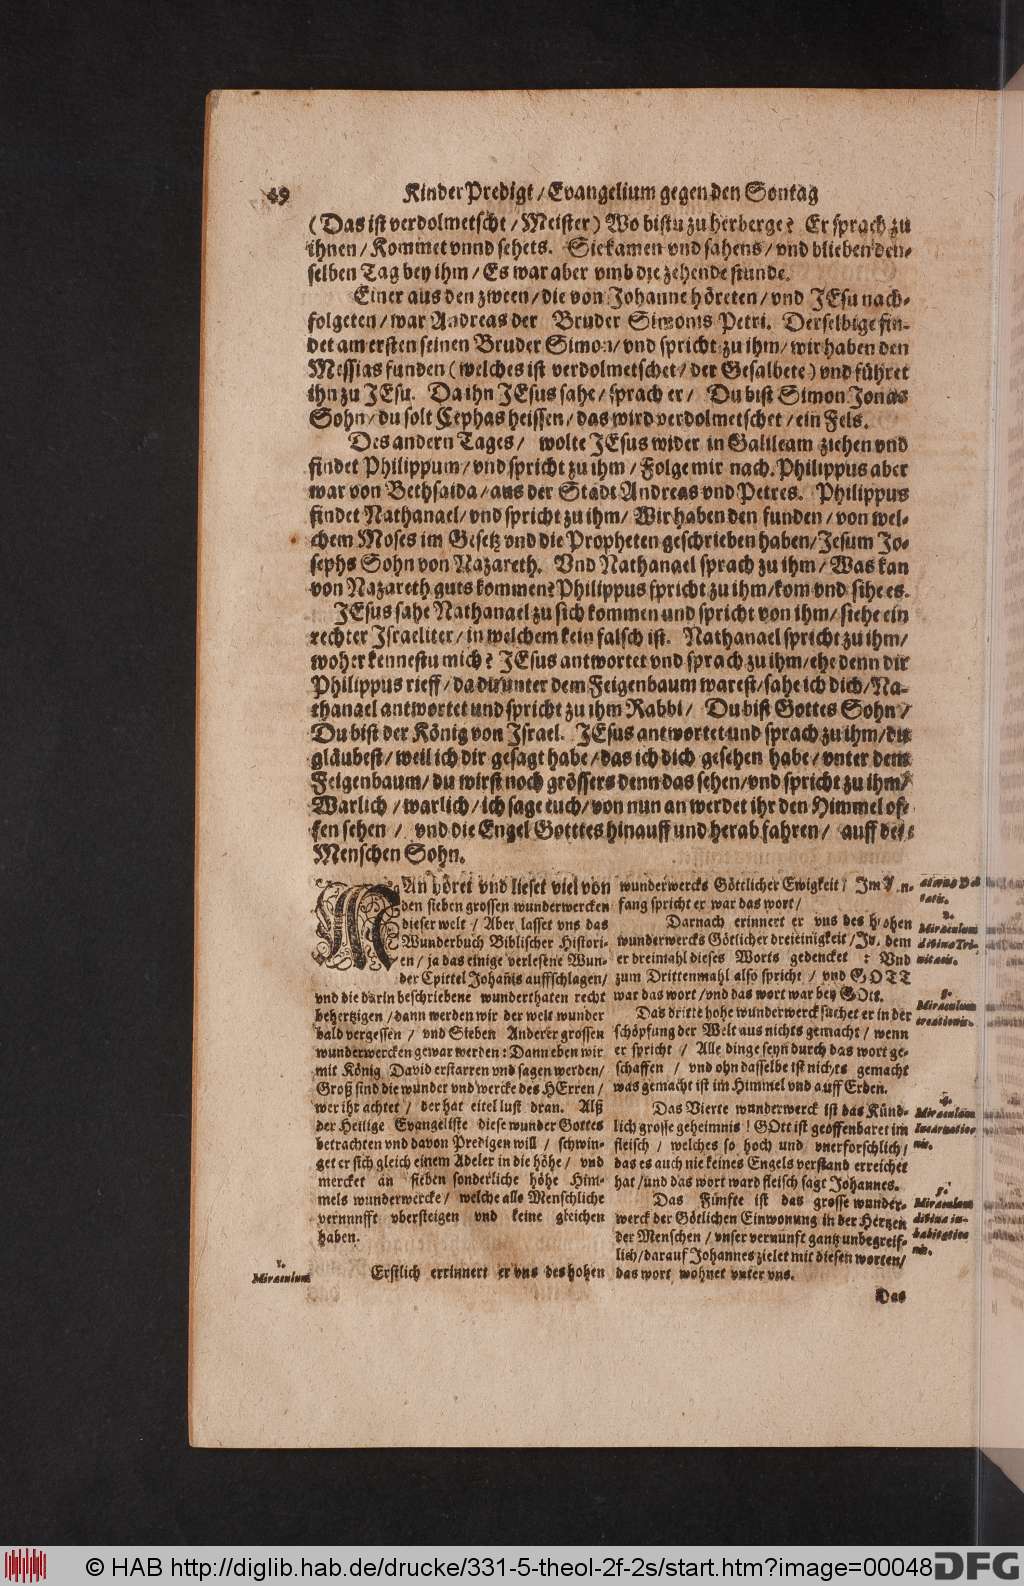 49
Kinder Predigt / Evangelium gegen den Sontag
(Das ist verdolmetscht / Meister) Wo bistu zu herberge? Er sprach zu
ihnen / Kommet vnnd sehets. Sie kamen vnd sahens / vnd blieben den-
selben Tag bey ihm / Es war aber vmb die zehende stunde.
Einer aus den zween / die von Johanne höreten / vnd JEsu nach-
folgeten / war Andreas der Bruder Simonis Petri. Derselbige fin-
det am ersten seinen Bruder Simon / vnd spricht zu ihm / wir haben den
Messias funden (welches ist verdolmetschet / der Gesalbete) vnd führet
ihn zu JEsu. Da ihn JEsus sahe / sprach er / Du bist Simon Jonas
Sohn / du solt Cephas heissen / das wird verdolmetschet / ein Fels.
Des andern Tages / wolte JEsus wider in Galileam ziehen vnd
findet Philippum / vnd spricht zu ihm / Folge mir nach. Philippus aber
war von Bethsaida / aus der Stadt Andreas vnd Petres. Philippus
findet Nathanael / vnd spricht zu ihm / Wir haben den funden / von wel-
chem Moses im Gesetz vnd die Propheten geschrieben haben / Jesum Jo-
sephs Sohn von Nazareth. Vnd Nathanael sprach zu ihm / Was kan
von Nazareth guts kommen? Philippus spricht zu ihm / kom vnd sihe es.
JEsus sahe Nathanael zu sich kommen und spricht von ihm / siehe ein
rechter Israeliter / in welchem kein falsch ist. Nathanael spricht zu ihm /
woher kennestu mich? JEsus antwortet vnd sprach zu ihm / ehe denn dir
Philippus rieff / da du unter dem Feigenbaum warest / sahe ich dich / Na-
thanael antwortet und spricht zu ihm Rabbi / Du bist Gottes Sohn /
Du bist der König von Israel. JEsus antwortet und sprach zu ihm / du
gläubest / weil ich dir gesagt habe / das ich dich gesehen habe / vnter dem
Feigenbaum / du wirst noch grössers denn das sehen / vnd spricht zu ihm /
Warlich / warlich / ich sage euch / von nun an werdet ihr den Himmel of-
fen sehen / vnd die Engel Gotttes hinauff und herab fahren / auff des
Menschen Sohn.
MAn höret vnd lieset viel von
den sieben grossen wunderwercken
dieser welt / Aber lasset vns das
Wunderbuch Biblischer Histori-
en / ja das einige verlesene Wun-
der Cpittel Johannis auffschlagen /
vnd die darin beschriebene wunderthaten recht
behertzigen / dann werden wir der welt wunder
bald vergessen / vnd Sieben Anderer grossen
wunderwercken gewar werden: Dann eben wir
mit König David erstarren vnd sagen werden /
Groß sind die wunder vnd wercke des HErren /
wer ihr achtet / der hat eitel lust dran. Alß
der Heilige Evangeliste diese wunder Gottes
betrachten vnd davon Predigen will / schwin-
get er sich gleich einem Adeler in die höhe / vnd
mercket an sieben sonderliche höhe Him-
mels wunderwercke / welche alle Menschliche
vernunfft vbersteigen vnd keine gleichen
haben.
1.
Miraculum
Erstlich errinnert er vns des hohen
wunderwercks Göttlicher Ewigkeit / Im An-
fang spricht er war das wort /
Darnach erinnert er vns des hohen
wunderwercks Götlicher dreieinigkeit / In dem
er dreimahl dieses Worts gedencket : Vnd
zum Drittenmahl also spricht / vnd GOTT
war das wort / vnd das wort war bey GOtt.
Das dritte hohe wunderwerck suchet er in der
schöpfung der Welt aus nichts gemacht / wenn
er spricht / Alle dinge seyn durch das wort ge-
schaffen / vnd ohn dasselbe ist nichts gemacht
was gemacht ist im Himmel vnd auff Erden.
Das Vierte wunderwerck ist das Künd-
lich grosse geheimnis! GOtt ist geoffenbaret im
fleisch / welches so hoch und vnerforschlich /
das es auch nie keines Engels verstand erreichet
hat / und das wort ward fleisch sagt Johannes.
Das Fünfte ist das grosse wunder-
werck der Götlichen Einwonung in der Hertzen
der Menschen / vnser vernunft gantz unbegreif-
lich / darauf Johannes zielet mit diesen worten /
das wort wohnet vnter vns.
2.
Miraculum
divinæ Tri-
nitatis.
3.
Miraculum
creationis.
4.
Miraculum
Incarnatio-
nis.
5.
Miraculum
divinæ in-
habitatio-
nis.
Das
© HAB http://diglib.hab.de/drucke/331-5-theol-2f-2s/start.htm?image=00048
DFG